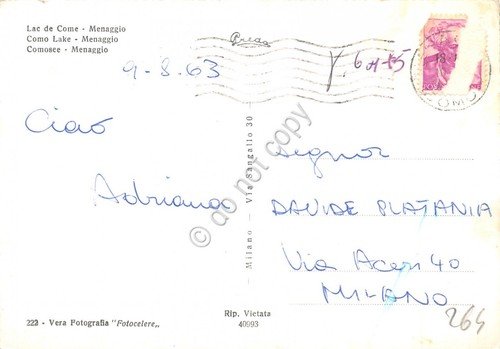 Lac de Come - Menaggio
Como Lake - Menaggio
Comosee - Menaggio
9-8.63
Ciao
Adriana
Signor
DAVIDE PLATANIA
Via 40
MILANO
264
Milano - Via Sangallo 30
222 - Vera Fotografia "Fotocelere„
Rip. Vietata
40993
© do not copy